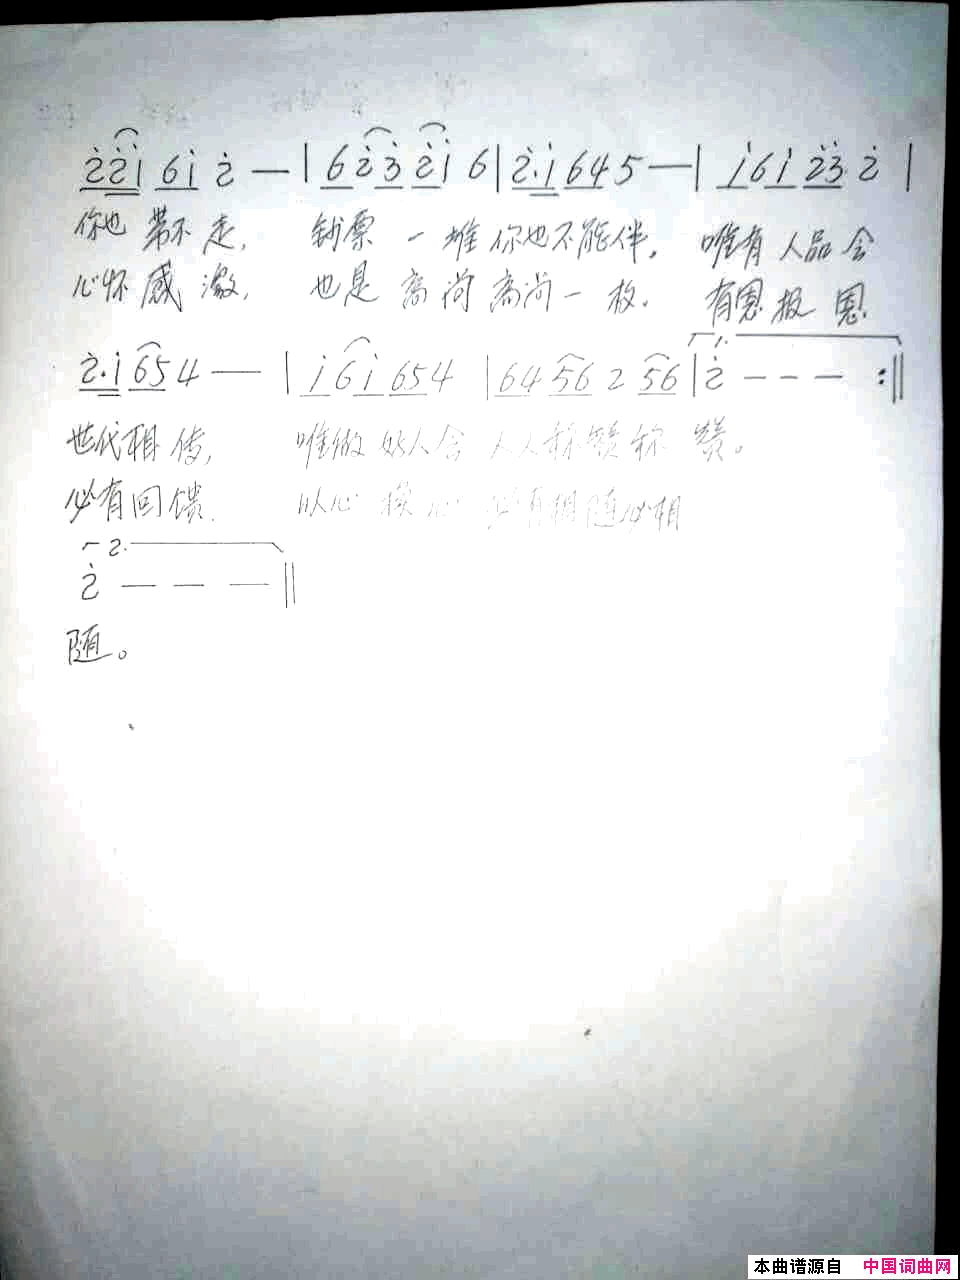 2̇ 2̇ 1̇ 6 1̇ 2̇ — | 6 2̇ 3̇ 2̇ 1̇ 6 | 2̇ · 1̇ 6 4 5 — | 1̇ 6 1̇ 2̇ 3̇ 2̇ |
你也 带不 走, 钞票 一堆 你也不能伴。 唯有 人品会
心怀 感激, 也是 高尚 高尚 一枚. 有恩 报 恩
2̇ · 1̇ 6 5 4 — | 1̇ 6 1̇ 6 5 4 | 6 4 5 6 2 5 6 | 1. 2̇ — — — :||
世代相传, 唯做 好人会 人人称赞称 赞。
必有回馈. 以心 换心 必有相随必相
2.
2̇ — — — ||
随。
本曲谱源自 中国词曲网